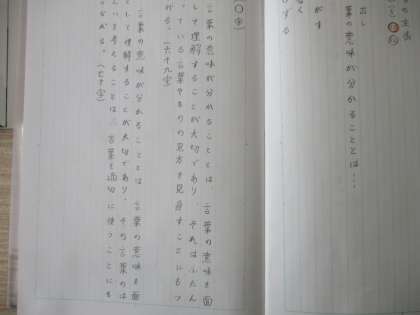 の文章
出し
葉の意味が分かることとは…
がす
する
言葉の意味が分かることとは、言葉の意味を面
して理解することが大切であり、それはふだん
ている言葉やものの見方を見直すことにもつ
がる。(六十九字)
言葉の意味が分かることとは、言葉の意味を面
として理解することが大切であり、その言葉のは
んいを考えることは、言葉を適切に使うことにも
つながる。(七十字)